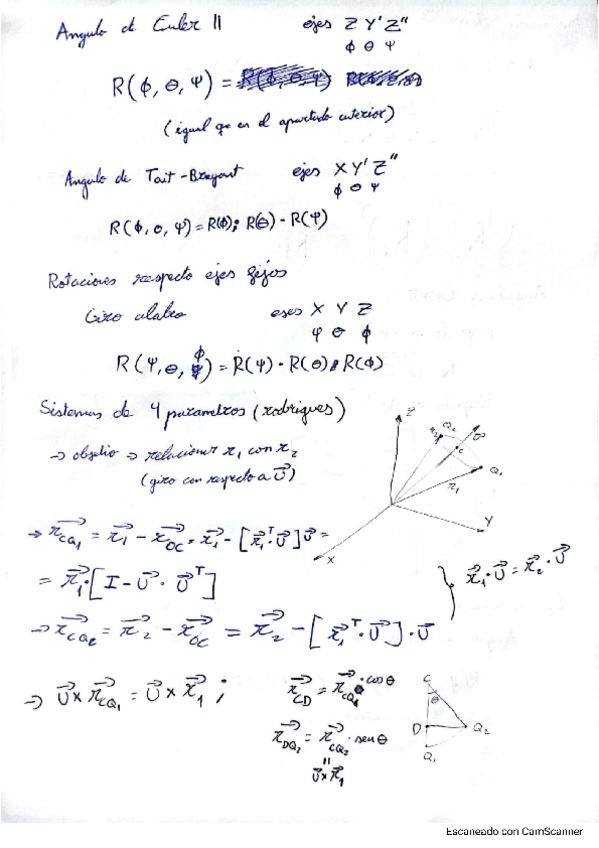 Angulo de Euler II ejes Z Y' Z''
φ θ ψ
R(φ, θ, ψ) =
(igual que en el apartado anterior)
Angulo de Tait-Brayant ejes X Y' Z''
φ θ ψ
R(φ, θ, ψ) = R(φ) · R(θ) · R(ψ)
Rotaciones respecto ejes fijos
Giro alabeo ejes X Y Z
ψ θ φ
R(ψ, θ, φ) = R(ψ) · R(θ) · R(φ)
Sistemas de 4 parametros (rodrigues)
→ objetio → relacionar r₁ con r₂
(giro con respecto a U⃗)
Z
Q₂
U⃗
r₂
C
Q₁
r₁
Y
X
→ r⃗_CQ₁ = r⃗₁ - r⃗_OC = r⃗₁ - [r⃗₁ᵀ · U⃗] U⃗ =
= r⃗₁ · [I - U⃗ · U⃗ᵀ]
r⃗₁ · U⃗ = r⃗₂ · U⃗
→ r⃗_CQ₂ = r⃗₂ - r⃗_OC = r⃗₂ - [r⃗₁ᵀ · U⃗] · U⃗
→ U⃗ x r⃗_CQ₁ = U⃗ x r⃗₁ ; r⃗_CD = r⃗_CQ₁ · cos θ
C
θ
D
Q₂
Q₁
r⃗_DQ₂ = r⃗_CQ₂ · sen θ
"
U⃗ x r⃗₁
Escaneado con CamScanner